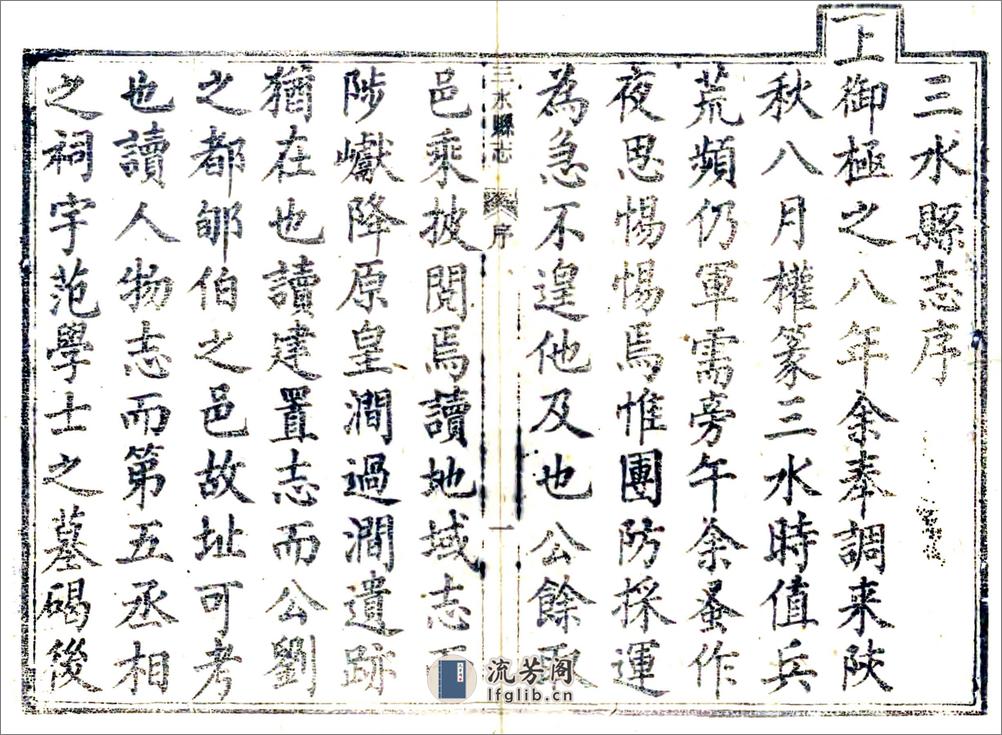 三水縣志序
上御極之八年余奉調来陝
秋八月權篆三水時值兵
荒頻仍軍需旁午余蚤作
夜思惕惕焉惟團防採運
為急不遑他及也公餘取
三水縣志 序 一
邑乘披閱焉讀地域志而
陟巘降原皇澗過澗遺跡
猶在也讀建置志而公劉
之都郇伯之邑故址可考
也讀人物志而第五丞相
之祠宇范學士之墓碣後
流芳阁
lfglib.cn